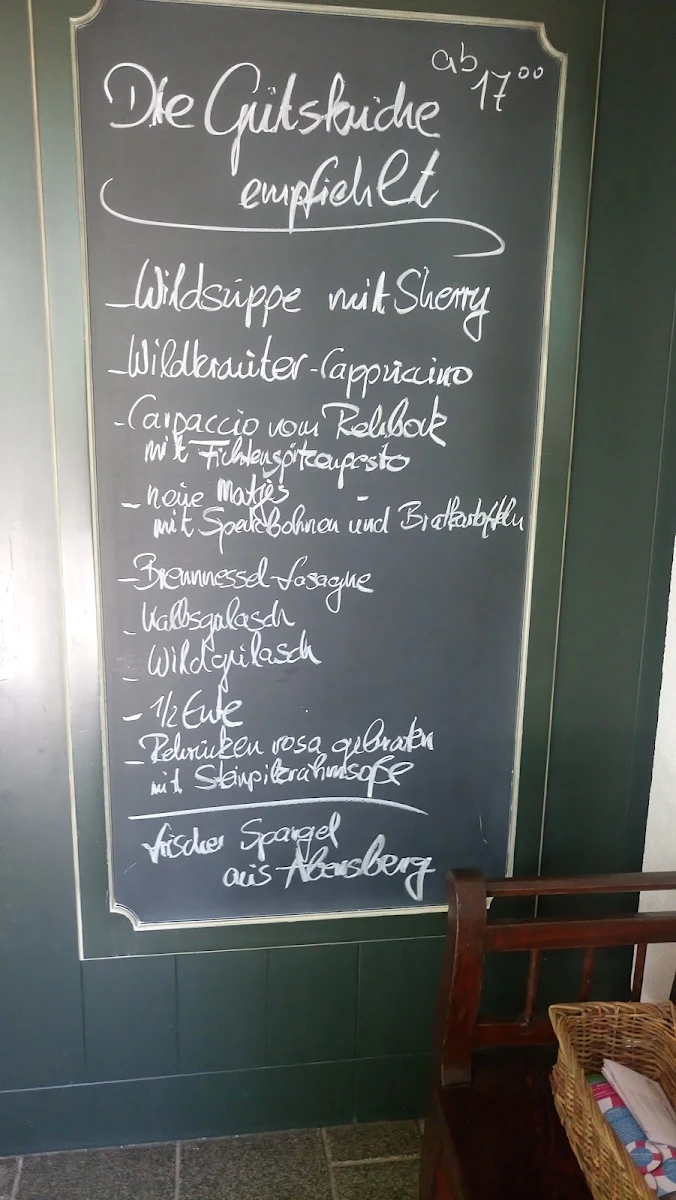 ab 17⁰⁰
Die Gutsküche
empfiehlt
- Wildsuppe mit Sherry
- Wildkräuter-Cappuccino
- Carpaccio vom Rehbock
mit Fichtenspitzenpesto
- neue Matjes
mit Speckbohnen und Bratkartoffeln
- Brennnessel-Lasagne
- Kalbsgulasch
- Wildgulasch
- 1/2 Ente
- Rehrücken rosa gebraten
mit Steinpilzrahmsoße
frischer Spargel
aus Abensberg